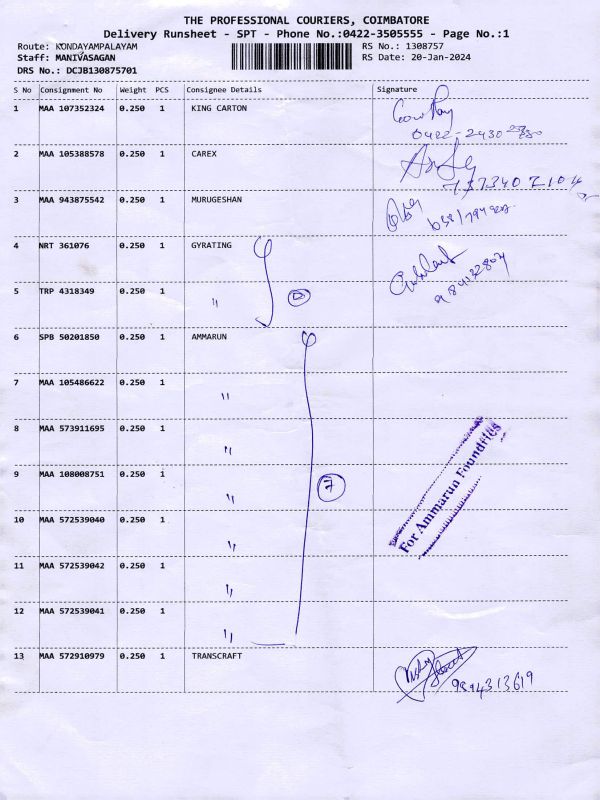 THE PROFESSIONAL COURIERS, COIMBATORE
Delivery Runsheet - SPT - Phone No.:0422-3505555 - Page No.:1
Route: KONDAYAMPALAYAM RS No.: 1308757
Staff: MANIVASAGAN RS Date: 20-Jan-2024
DRS No.: DCJB130875701
S No Consignment No Weight PCS Consignee Details Signature
1 MAA 107352324 0.250 1 KING CARTON
0422-2430
2 MAA 105388578 0.250 1 CAREX
3 MAA 943875542 0.250 1 MURUGESHAN
4 NRT 361076 0.250 1 GYRATING
5 TRP 4318349 0.250 1 "
6 SPB 50201850 0.250 1 AMMARUN
7 MAA 105486622 0.250 1 "
8 MAA 573911695 0.250 1 "
For Ammarun Foundries
9 MAA 108008751 0.250 1 " 7
10 MAA 572539040 0.250 1 "
11 MAA 572539042 0.250 1 "
12 MAA 572539041 0.250 1 "
13 MAA 572910979 0.250 1 TRANSCRAFT
9894313619